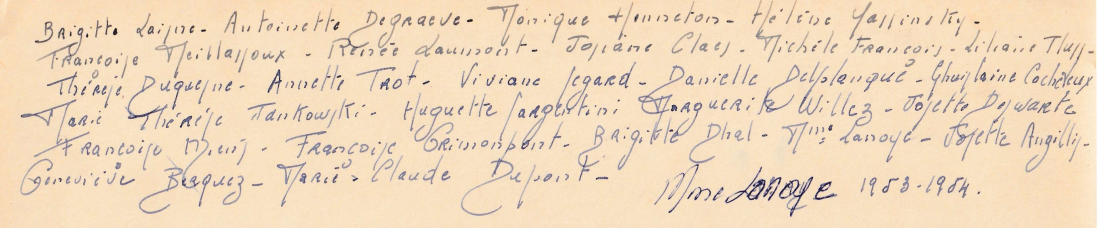 Brigitte Laisne - Antoinette Degraeve - Monique Henneton - Hélène Yassinsky -
Françoise Meillassoux - Renée Laumont - Josiane Claes - Michèle François - Liliane
Thérèse Duquesne - Annette Trot - Viviane Segard - Danielle Delplanque - Ghislaine Cocheteux
Marie Thérèse Jankowski - Huguette Sargentini Marguerite Willez - Josette Deswarte
Françoise - Françoise Grimonpont - Brigitte Dhal - Mme Lanoye - Josette Angillis -
Geneviève Becquez - Marie-Claude Dupont -
Mme Lanoye 1953-1954.